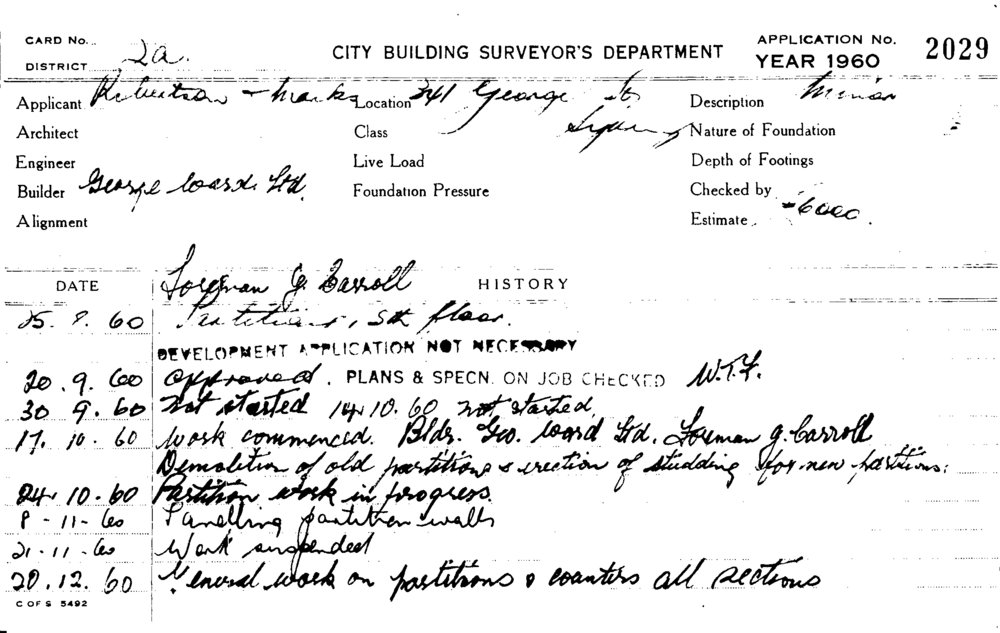 CARD No. CITY BUILDING SURVEYOR'S DEPARTMENT APPLICATION No. 2029
DISTRICT 2a. YEAR 1960
Applicant Robertson + Marks Location 341 George St Description Minor
Architect Class Sydney Nature of Foundation
Engineer Live Load Depth of Footings
Builder George Ward Ltd. Foundation Pressure Checked by
Alignment Estimate 6000.
Foreman J Carroll
DATE HISTORY
25. 8. 60 Partitions, 5th floor.
DEVELOPMENT APPLICATION NOT NECESSARY
20. 9. 60 Approved. PLANS & SPECN. ON JOB CHECKED W.T.F.
30 9. 60 Not started 14.10.60 not started.
17. 10. 60 Work commenced. Bldr. Geo. Ward Ltd. Foreman J. Carroll
Demolition of old partitions & erection of studding for new partitions.
24. 10. 60 Partition work in progress.
8 - 11 - 60 Panelling partition walls
21 - 11 - 60 Work suspended
20. 12. 60 General work on partitions & counters all sections
C OF S 5492